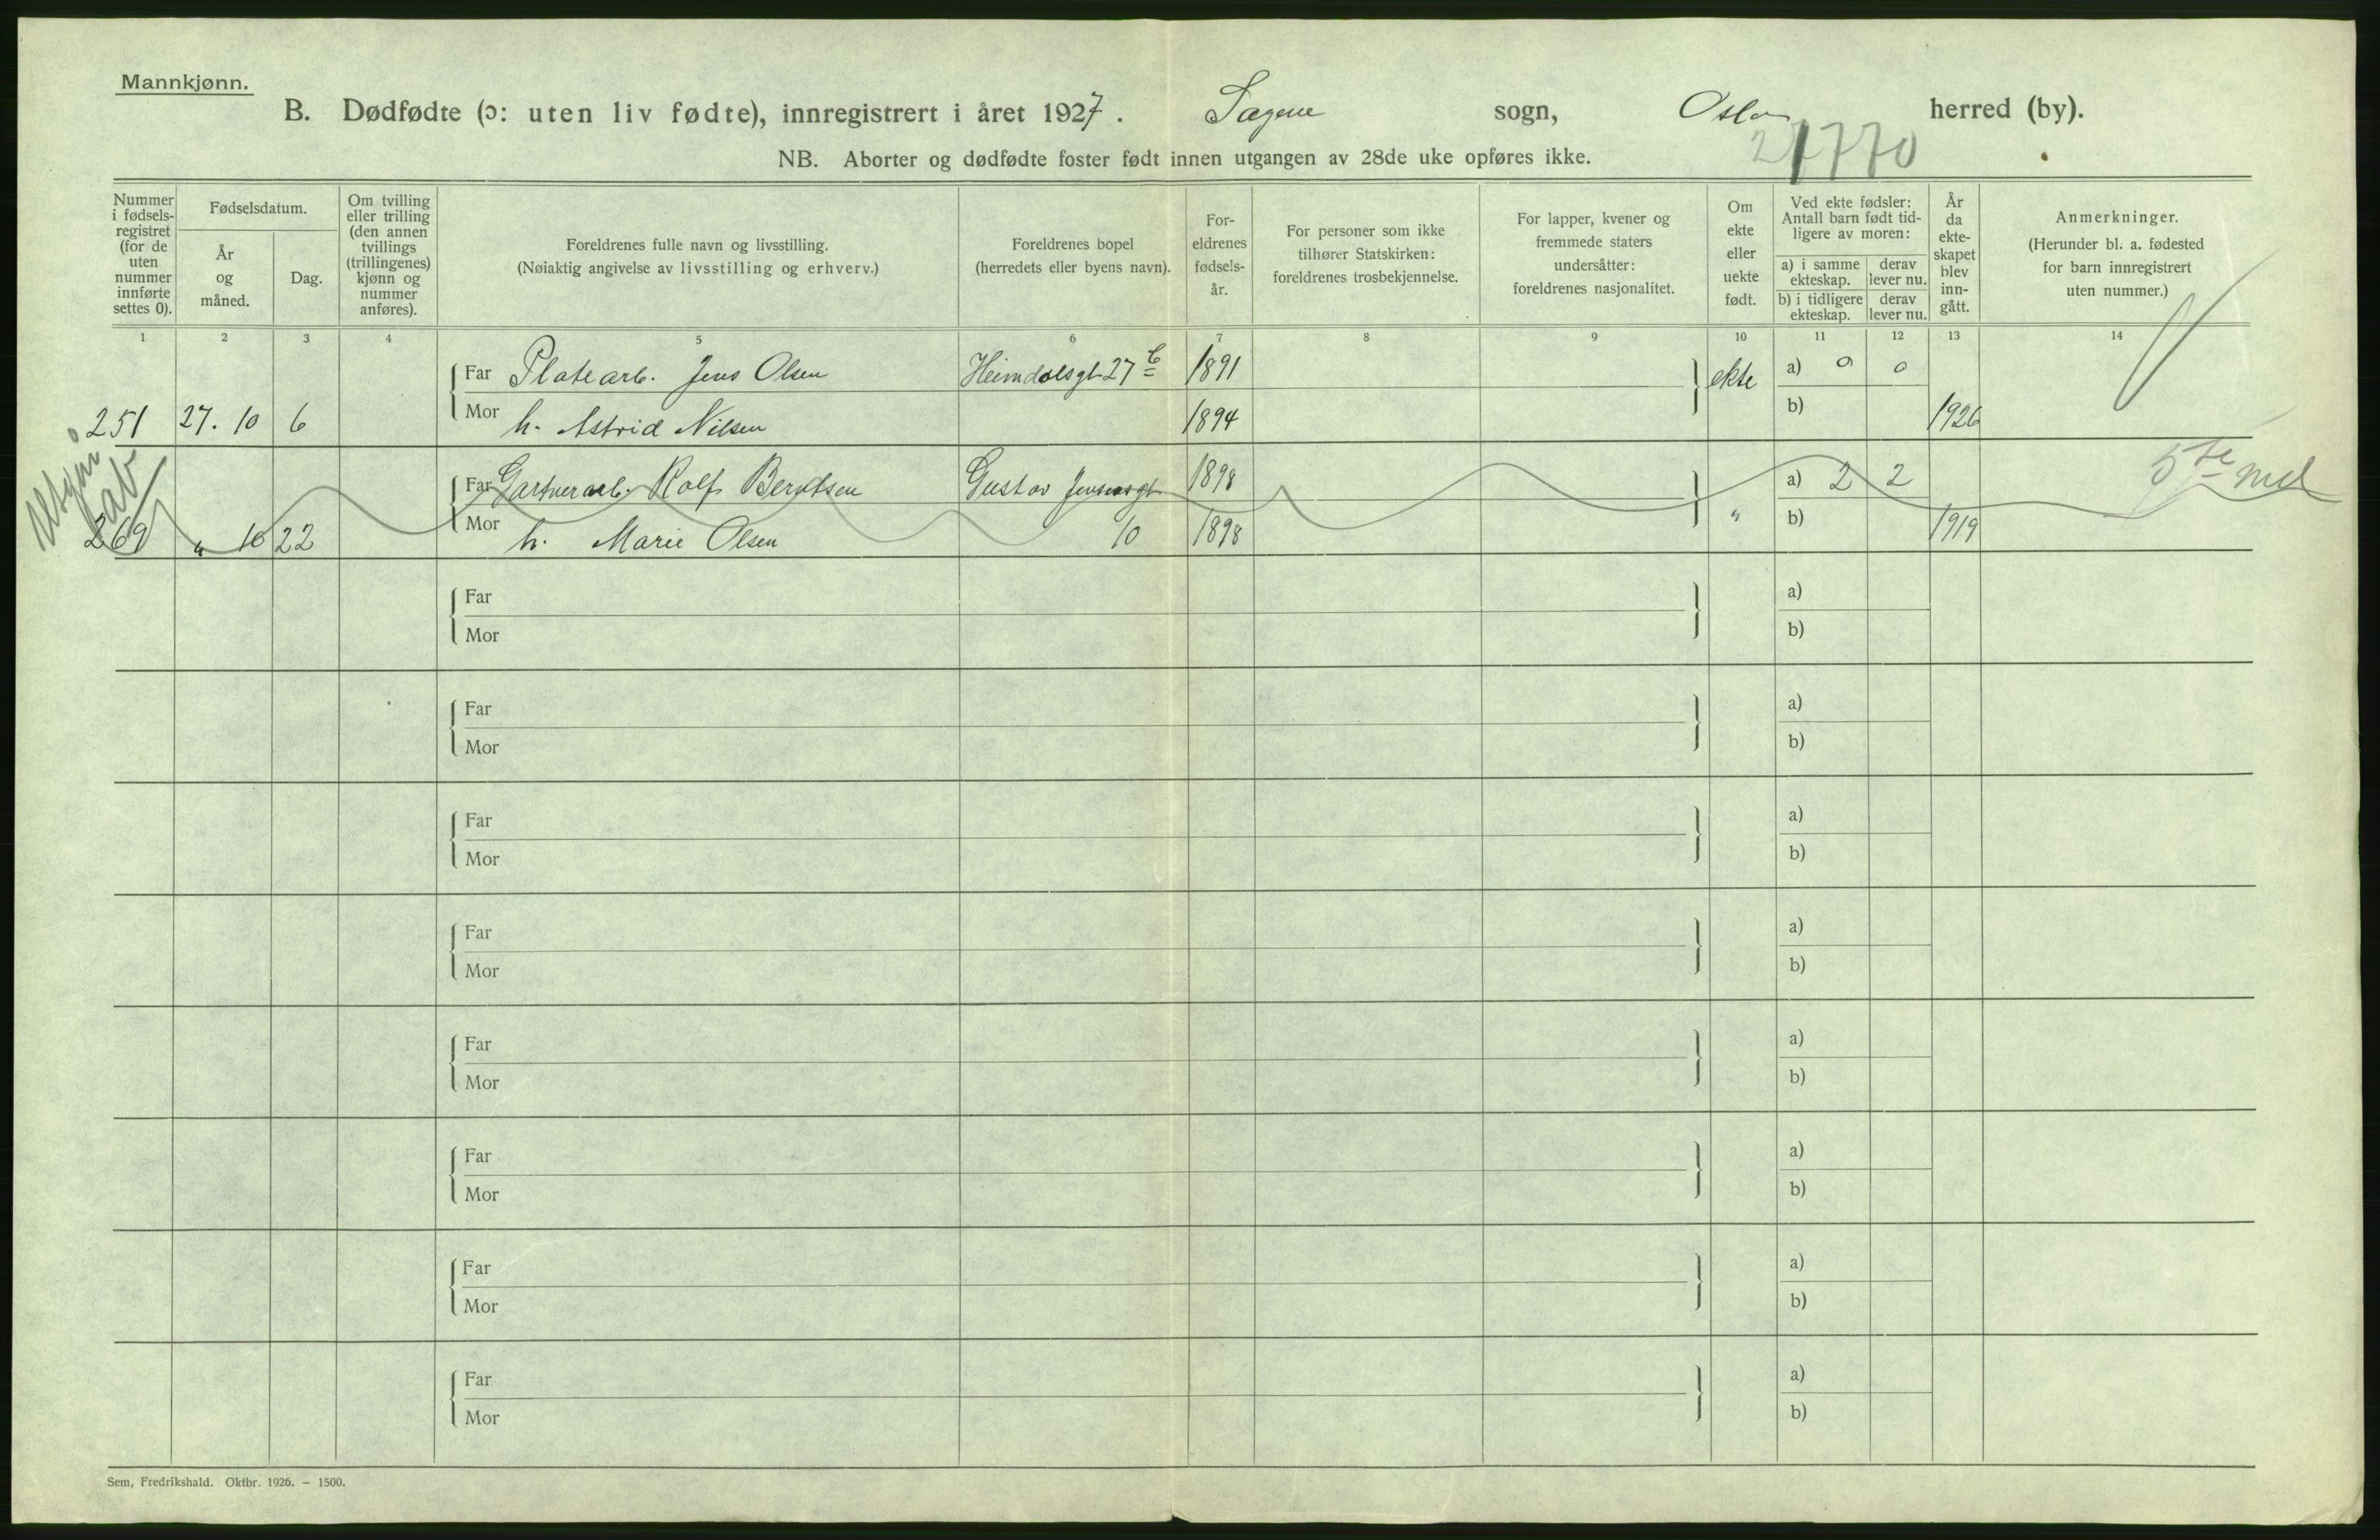 Mannkjønn.
B. Dødfødte (ɔ: uten liv fødte), innregistrert i året 1927. Sagene sogn, Oslo herred (by).
NB. Aborter og dødfødte foster født innen utgangen av 28de uke opføres ikke.
Nummer i fødsels-registret (for de uten nummer innførte settes 0).
Fødselsdatum.
År og måned.
Dag.
Om tvilling eller trilling (den annen tvillings (trillingenes) kjønn og nummer anføres).
Foreldrenes fulle navn og livsstilling.
(Nøiaktig angivelse av livsstilling og erhverv.)
Foreldrenes bopel
(herredets eller byens navn).
For-eldrenes fødsels-år.
For personer som ikke tilhører Statskirken: foreldrenes trosbekjennelse.
For lapper, kvener og fremmede staters undersåtter: foreldrenes nasjonalitet.
Om ekte eller uekte født.
Ved ekte fødsler: Antall barn født tid-ligere av moren:
a) i samme ekteskap.
derav lever nu.
b) i tidligere ekteskap.
derav lever nu.
År da ekte-skapet blev inn-gått.
Anmerkninger.
(Herunder bl. a. fødested for barn innregistrert uten nummer.)
1 2 3 4 5 6 7 8 9 10 11 12 13 14
Far Platearb. Jens Olsen Heimdalsgt 27 b 1891 ekte a) 0 0
251 27. 10 6 Mor h. Astrid Nilsen 1894 b) 1926
Far Gartnerarb. Rolf Berntsen Gustav Jensensgt 1898 a) 2 2 5te md
269 " 10 22 Mor h. Marie Olsen 10 1898 " b) 1919
Far a)
Mor b)
Far a)
Mor b)
Far a)
Mor b)
Far a)
Mor b)
Far a)
Mor b)
Far a)
Mor b)
Far a)
Mor b)
Far a)
Mor b)
Sem, Fredrikshald. Oktbr. 1926. — 1500.